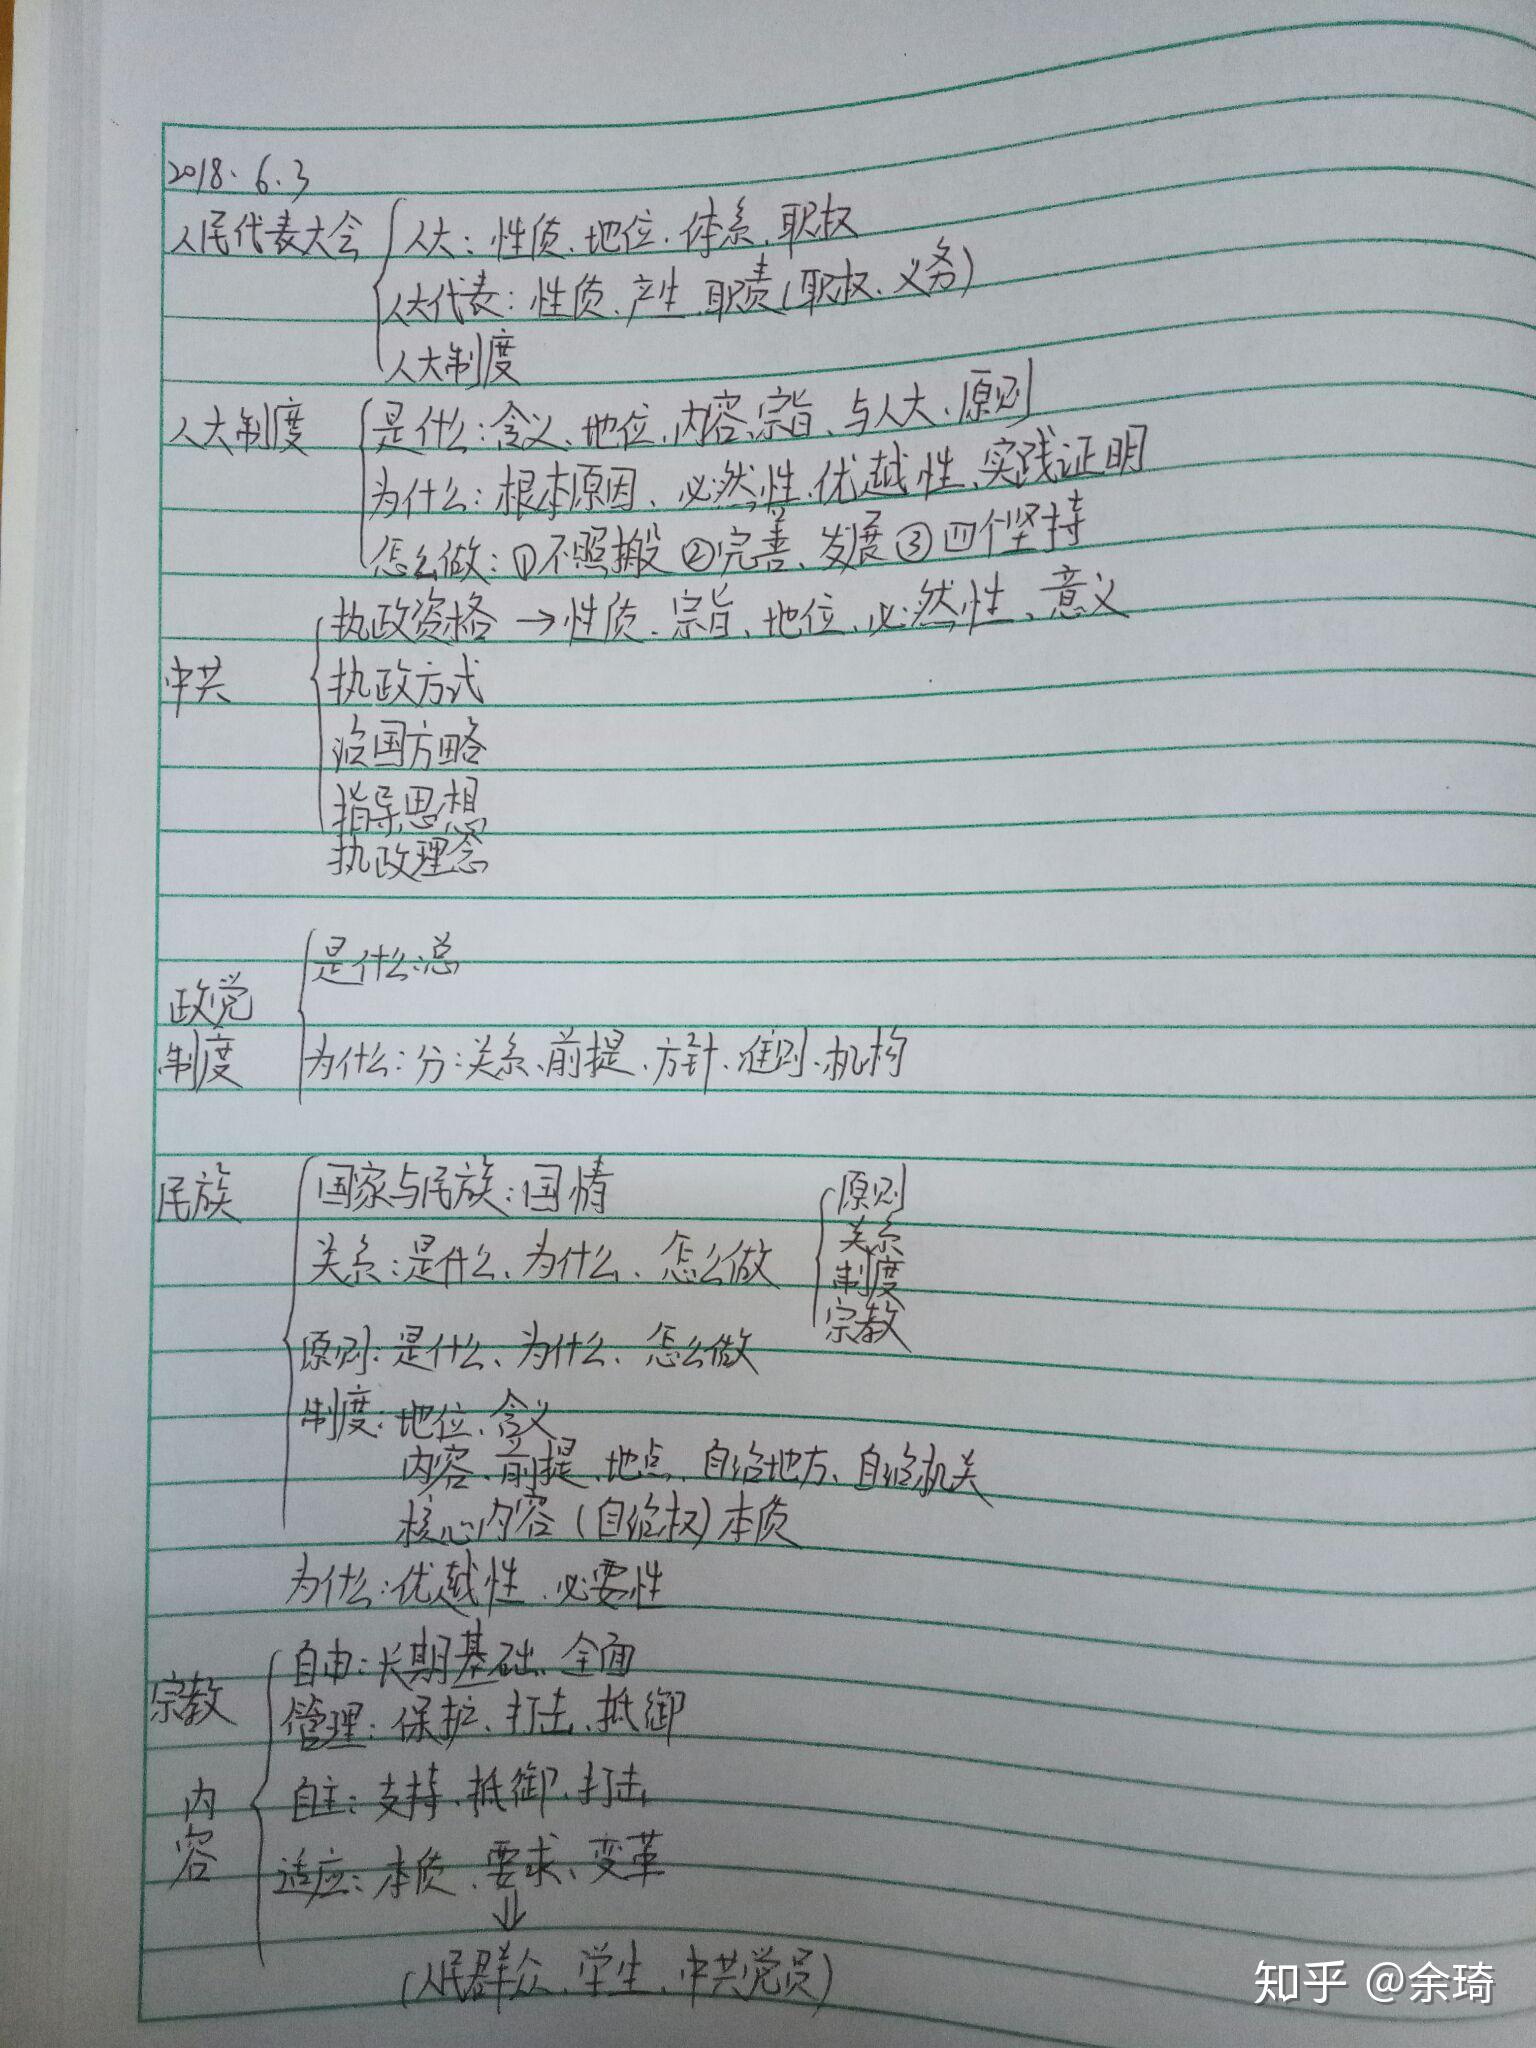 2018.6.3
人民代表大会 人大：性质、地位、体系、职权
人大代表：性质、产生、职责(职权、义务)
人大制度
人大制度 是什么：含义、地位、内容、宗旨、与人大、原则
为什么：根本原因、必然性、优越性、实践证明
怎么做：①不照搬②完善、发展③四个坚持
执政资格→性质、宗旨、地位、必然性、意义
中共 执政方式
治国方略
指导思想
执政理念
是什么：总
政党
制度 为什么：分：关系、前提、方针、准则、机构
民族 国家与民族：国情
关系：是什么、为什么、怎么做
原则：是什么、为什么、怎么做
原则
关系
制度
宗教
制度：地位、含义
内容、前提、地点、自治地方、自治机关
核心内容(自治权)本质
为什么：优越性、必要性
宗教 自由：长期基础、全面
管理：保护、打击、抵御
内容
自主：支持、抵御、打击
适应：本质、要求、变革
↓
(人民群众、学生、中共党员)
知乎 @余琦